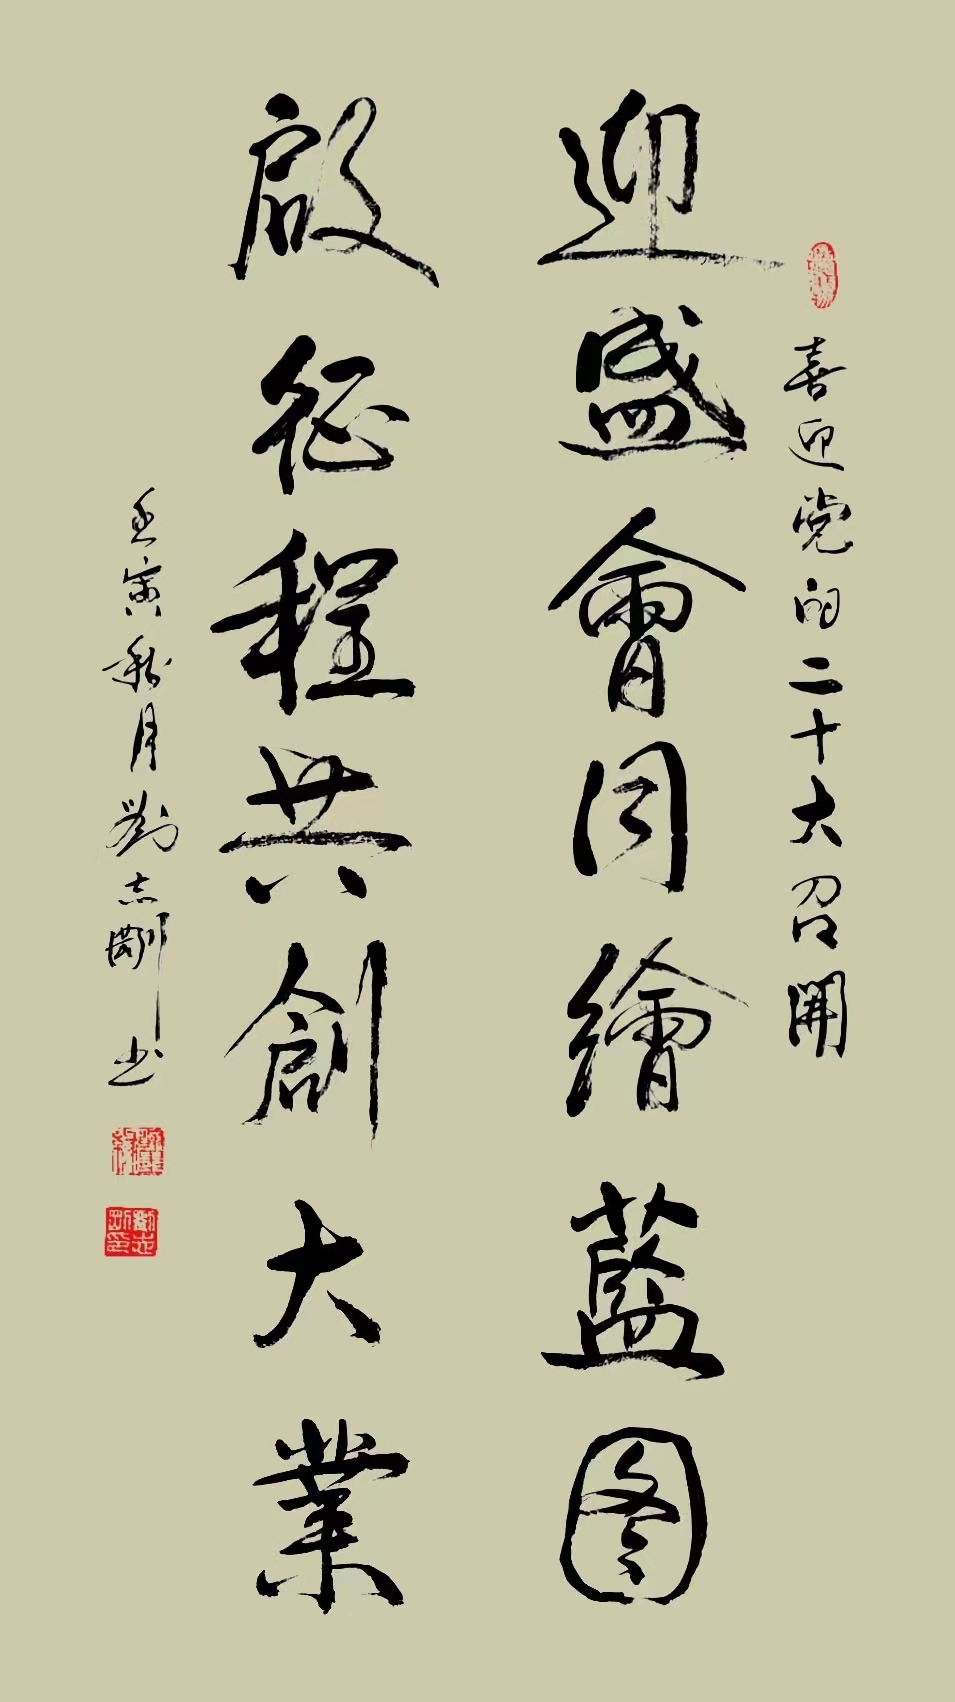 喜迎党的二十大召開
迎盛會同繪藍图
啟征程共創大業
壬寅秋月劉志剛书
劉志剛印